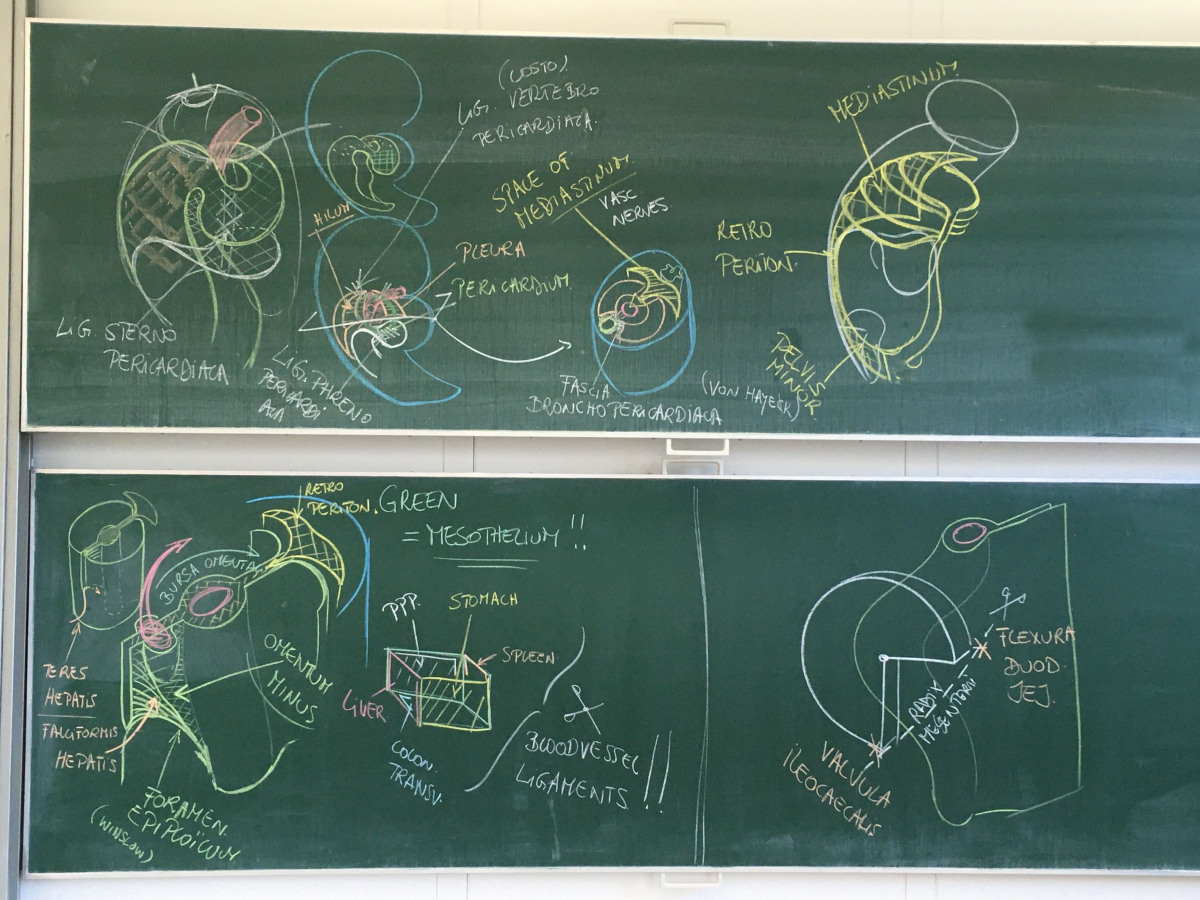 (COSTO)
LIG. VERTEBRO
PERICARDIACA.
MEDIASTINUM.
SPACE OF
MEDIASTINUM
VASC
NERVES.
HILUM
PLEURA
PERICARDIUM
RETRO
PERITON.
LIG. STERNO
PERICARDIACA
LIG. PHRENO
PERICARDI
ACA
FASCIA
BRONCHOPERICARDIACA
(VON HAYECK)
PELVIS
MINOR
RETRO
PERITON.
GREEN
= MESOTHELIUM!!
BURSA OMENTAL
PPP.
STOMACH
SPLEEN
LIVER
COLON.
TRANSV.
OMENTUM
MINUS
TERES
HEPATIS
FALCIFORMIS
HEPATIS
FORAMEN
EPIPLOÏCUM
(WINSLOW)
BLOODVESSEL
LIGAMENTS!!
FLEXURA
DUOD.
JEJ.
RADIX
MESENTERII
VALVULA
ILEOCAECALIS